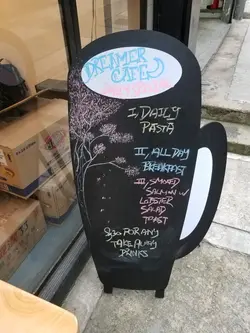 DREAMER
CAFE
I, DAILY
PASTA
II, ALL DAY
BREAKFAST
III, SMOKED
SALMON W
LOBSTER
SALAD
TOAST
$30 FOR ANY
TAKE AWAY
DRINKS